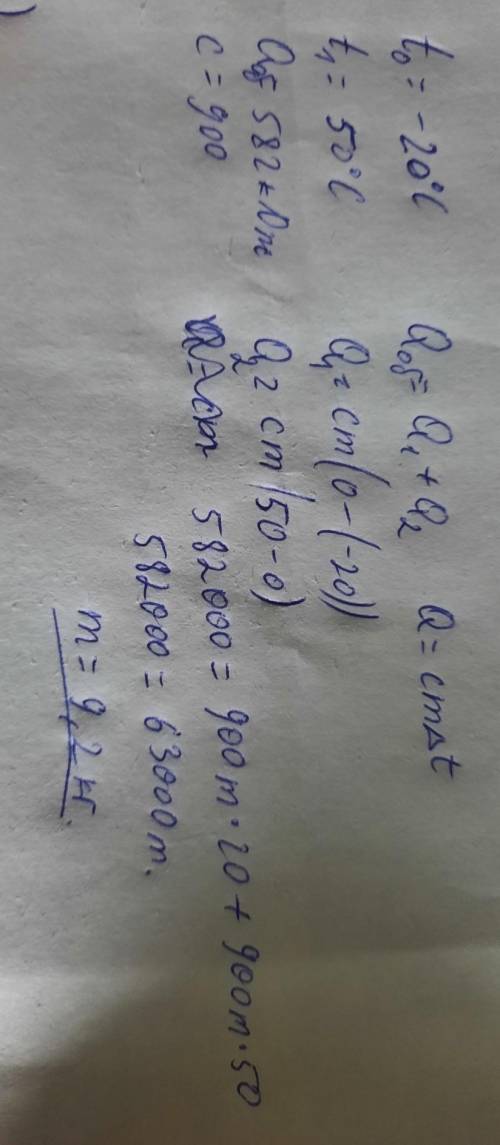 t₀ = -20°C
t₁ = 50°C
Qоб = 582 кДж
c = 900
Qоб = Q₁ + Q₂ Q = cmΔt
Q₁ = cm(0-(-20))
Q₂ = cm(50-0)
582000 = 900m·20 + 900m·50
582000 = 63000m.
m = 9,2 кг.